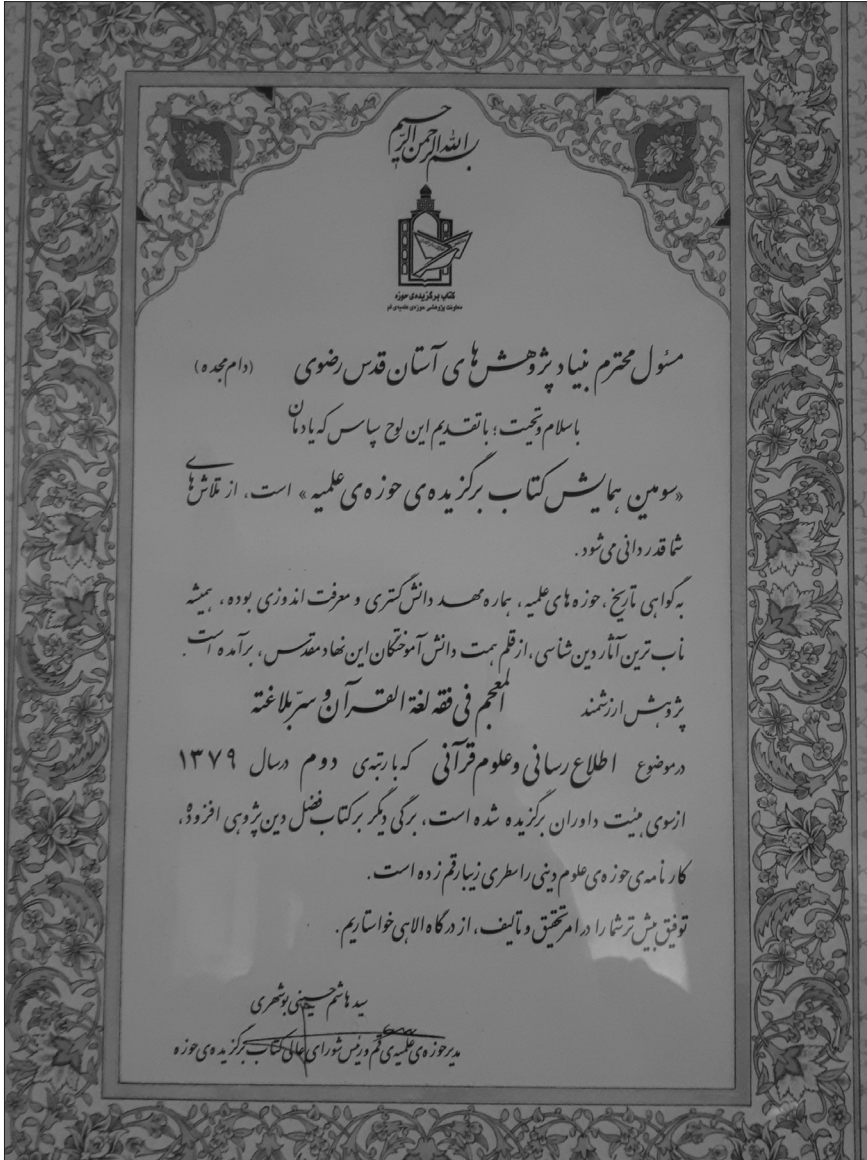 بسم الله الرحمن الرحیم
کتاب برگزیده‌ی حوزه
معاونت پژوهشی حوزه‌ی علمیه‌ی قم
مسئول محترم بنیاد پژوهش‌های آستان قدس رضوی (دام مجده)
با سلام و تحیت؛ با تقدیم این لوح سپاس که یادمان
«سومین همایش کتاب برگزیده‌ی حوزه‌ی علمیه» است، از تلاش‌های
شما قدردانی می‌شود.
به گواهی تاریخ، حوزه‌های علمیه، هماره مهد دانش‌گستری و معرفت‌اندوزی بوده، همیشه
ناب‌ترین آثار دین‌شناسی، از قلم همت دانش‌آموختگان این نهاد مقدس، برآمده است.
پژوهش ارزشمند المعجم فی فقه لغة القرآن و سرّ بلاغته
در موضوع اطلاع رسانی و علوم قرآنی که با رتبه‌ی دوم در سال ۱۳۷۹
از سوی هیئت داوران برگزیده شده است، برگی دیگر بر کتاب فضل دین‌پژوهی افزوده،
کارنامه‌ی حوزه‌ی علوم دینی را سطری زیبا رقم زده است.
توفیق بیش‌تر شما را در امر تحقیق و تألیف، از درگاه الاهی خواستاریم.
سید هاشم حسینی بوشهری
مدیر حوزه‌ی علمیه‌ی قم و رئیس شورای عالی کتاب برگزیده‌ی حوزه